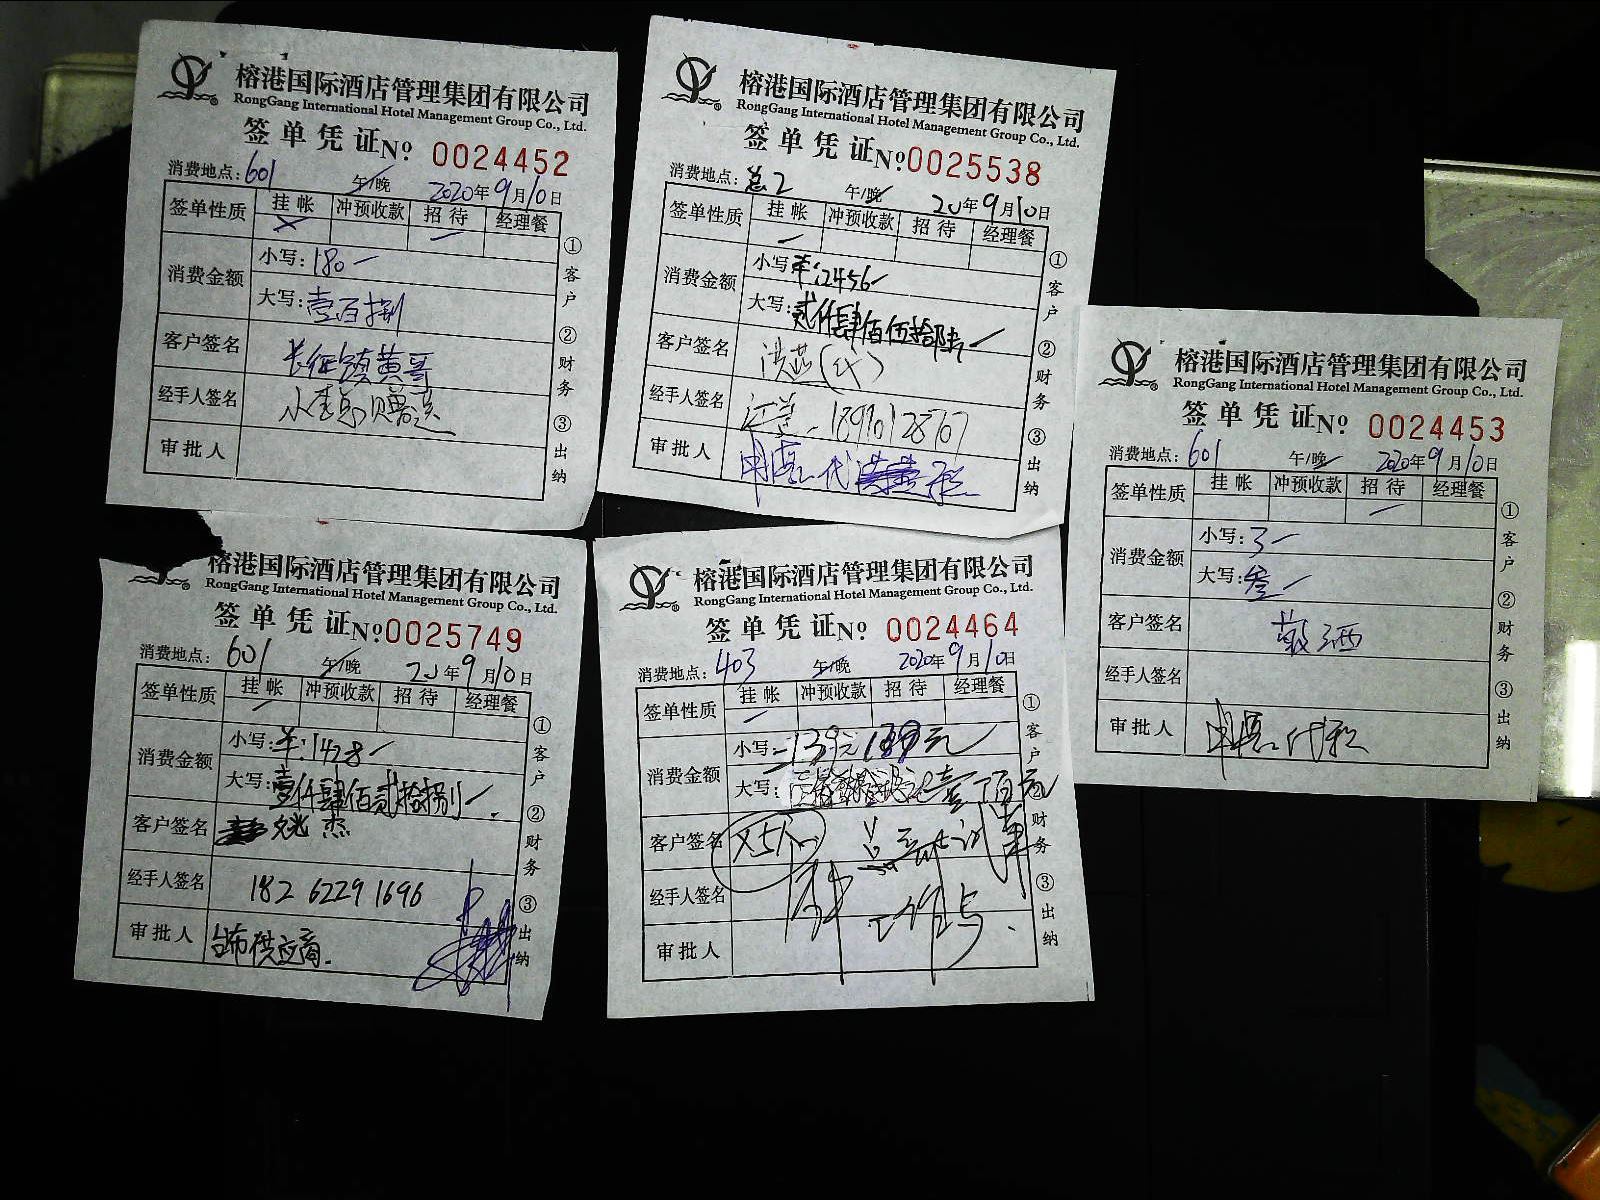 榕港国际酒店管理集团有限公司
RongGang International Hotel Management Group Co., Ltd.
签单凭证 № 0024452
消费地点: 601 午/晚 2020年9月10日
签单性质 挂帐 冲预收款 招待 经理餐
消费金额 小写: 180
大写: 壹百捌
客户签名 长征镇黄哥
经手人签名 赠送
审批人
①客户 ②财务 ③出纳
榕港国际酒店管理集团有限公司
RongGang International Hotel Management Group Co., Ltd.
签单凭证 № 0025538
消费地点: 总2 午/晚 20年9月10日
签单性质 挂帐 冲预收款 招待 经理餐
消费金额 小写: 2456
大写: 贰仟肆佰伍拾陆
客户签名 (代)
经手人签名
审批人 代
①客户 ②财务 ③出纳
榕港国际酒店管理集团有限公司
RongGang International Hotel Management Group Co., Ltd.
签单凭证 № 0024453
消费地点: 601 午/晚 2020年9月10日
签单性质 挂帐 冲预收款 招待 经理餐
消费金额 小写: 3
大写: 叁
客户签名 敬酒
经手人签名
审批人
①客户 ②财务 ③出纳
榕港国际酒店管理集团有限公司
RongGang International Hotel Management Group Co., Ltd.
签单凭证 № 0025749
消费地点: 601 午/晚 20年9月10日
签单性质 挂帐 冲预收款 招待 经理餐
消费金额 小写: 1428
大写: 壹仟肆佰贰拾捌
客户签名 姚杰
经手人签名 182 6229 1696
审批人 台布供应商.
①客户 ②财务 ③出纳
榕港国际酒店管理集团有限公司
RongGang International Hotel Management Group Co., Ltd.
签单凭证 № 0024464
消费地点: 403 午/晚 2020年9月10日
签单性质 挂帐 冲预收款 招待 经理餐
消费金额 小写: 139元
大写:
客户签名
经手人签名 工作
审批人
①客户 ②财务 ③出纳